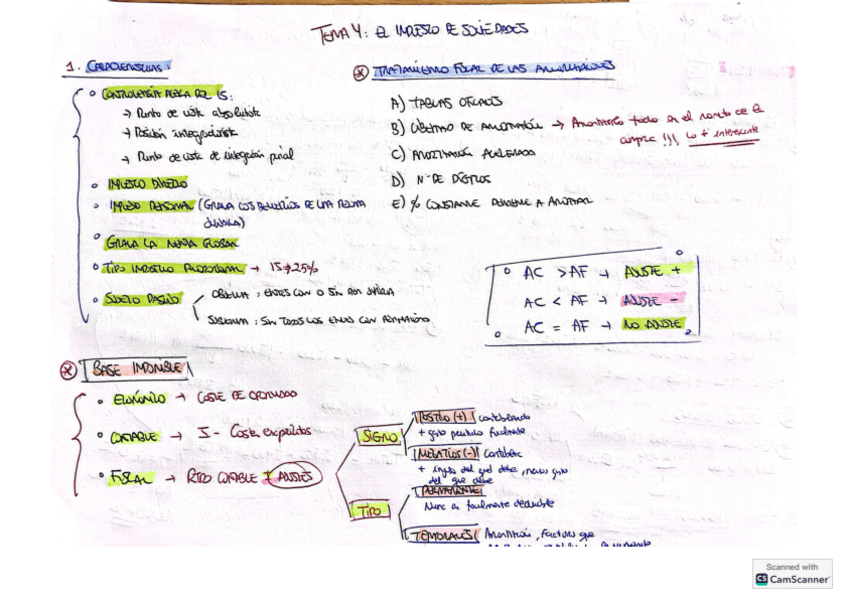 TEMA 4: EL IMPUESTO DE SOCIEDADES
1. CARACTERÍSTICAS:
° CONTROVERSIA ACERCA DEL IS:
→ Punto de vista absolutista
→ Posición integracionista
→ Punto de vista de integración parcial
° IMPUESTO DIRECTO
° IMPUESTO PERSONAL (GRAVA LOS BENEFICIOS DE UNA PERSONA
JURÍDICA)
° GRAVA LA RENTA GLOBAL
° TIPO IMPOSITIVO PROPORCIONAL → IS → 25%
° SUJETO PASIVO
OBJETIVA : ENTES CON O SIN PERS. JURÍDICA
SUBJETIVA : SIN TODOS LOS ENTES CON
* TRATAMIENTO FISCAL DE LAS AMORTIZACIONES
A) TABLAS OFICIALES
B) LIBERTAD DE AMORTIZACIÓN → Amortizamos todo en el momento de la
compra !!! Lo + interesante
C) AMORTIZACIÓN ACELERADA
D) Nº DE DÍGITOS
E) % CONSTANTE PENDIENTE A AMORTIZAR
° AC > AF → AJUSTE +
AC < AF → AJUSTE -
AC = AF → NO AJUSTE
* BASE IMPONIBLE
° ECONÓMICO → COSTE DE OPORTUNIDAD
° CONTABLE → I - Costes explícitos
° FISCAL → RTDO CONTABLE ± AJUSTES
SIGNO
POSITIVO (+) contabilizando
+ gasto permitido fiscalmente
NEGATIVOS (-) Contabilizar
+ ingreso del que debe, menos gasto
del que debe
TIPO
PERMANENTE:
Nunca es fiscalmente deducible
TEMPORALES: Amortización, facturas que
Scanned with
CS CamScanner